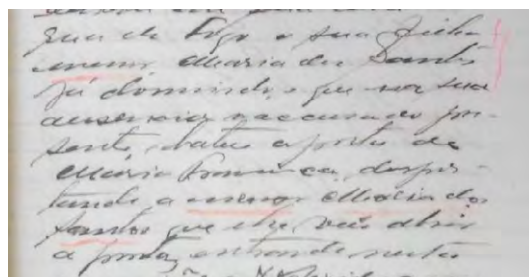 que de logo a sua filha
menor Maria dos Santos
já dormindo, e que na sua
ausencia o accusado pre-
sente, bateu a porta de
Maria Francisca, desper-
tando a menor Maria dos
Santos que lhe veio abrir
a porta, entrando neste